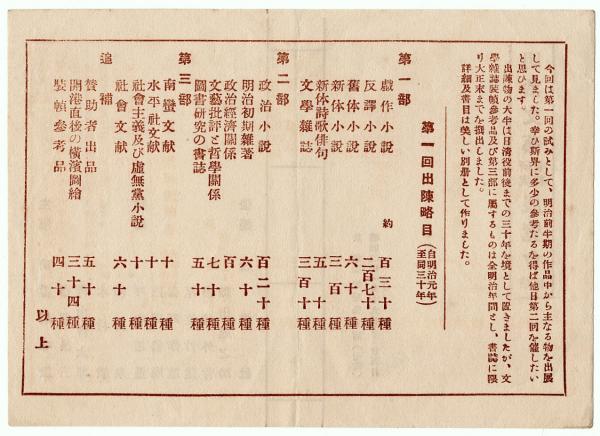 今回は第一回の試みとして、明治前半期の作品中から主なる物を出展
して見ました。幸ひ斯界に多少の参考たるを得ば他日第二回を催したい
と思ひます。
出陳物の大半は日清役前後までの三十年を境として置きましたが、文
學雜誌裝幀參考品及び第三部に屬するものは全明治年間とし、書誌に限
り大正末までを撰出しました。
詳細及書目は美しい別册として作りました。
第一回出陳略目（自明治元年至同三十年）
第一部
戯作小説 約 百三十種
反譯小説 二百七十種
舊体小説 六十種
新体小説 三百種
新体詩歌俳句 五十種
文學雜誌 三百十種
第二部
政治小説 百二十種
明治初期雜著 六十種
政治經濟關係 百種
文藝批評と哲學關係 七十種
圖書研究の書誌 五十種
第三部
南蠻文献 十種
水平社文献 十種
社會主義及び虛無黨小説 十種
社會文献 六十種
追補
賛助者出品 五十種
開港直後の橫濱圖繪 三十四種
裝幀參考品 四十種
以上